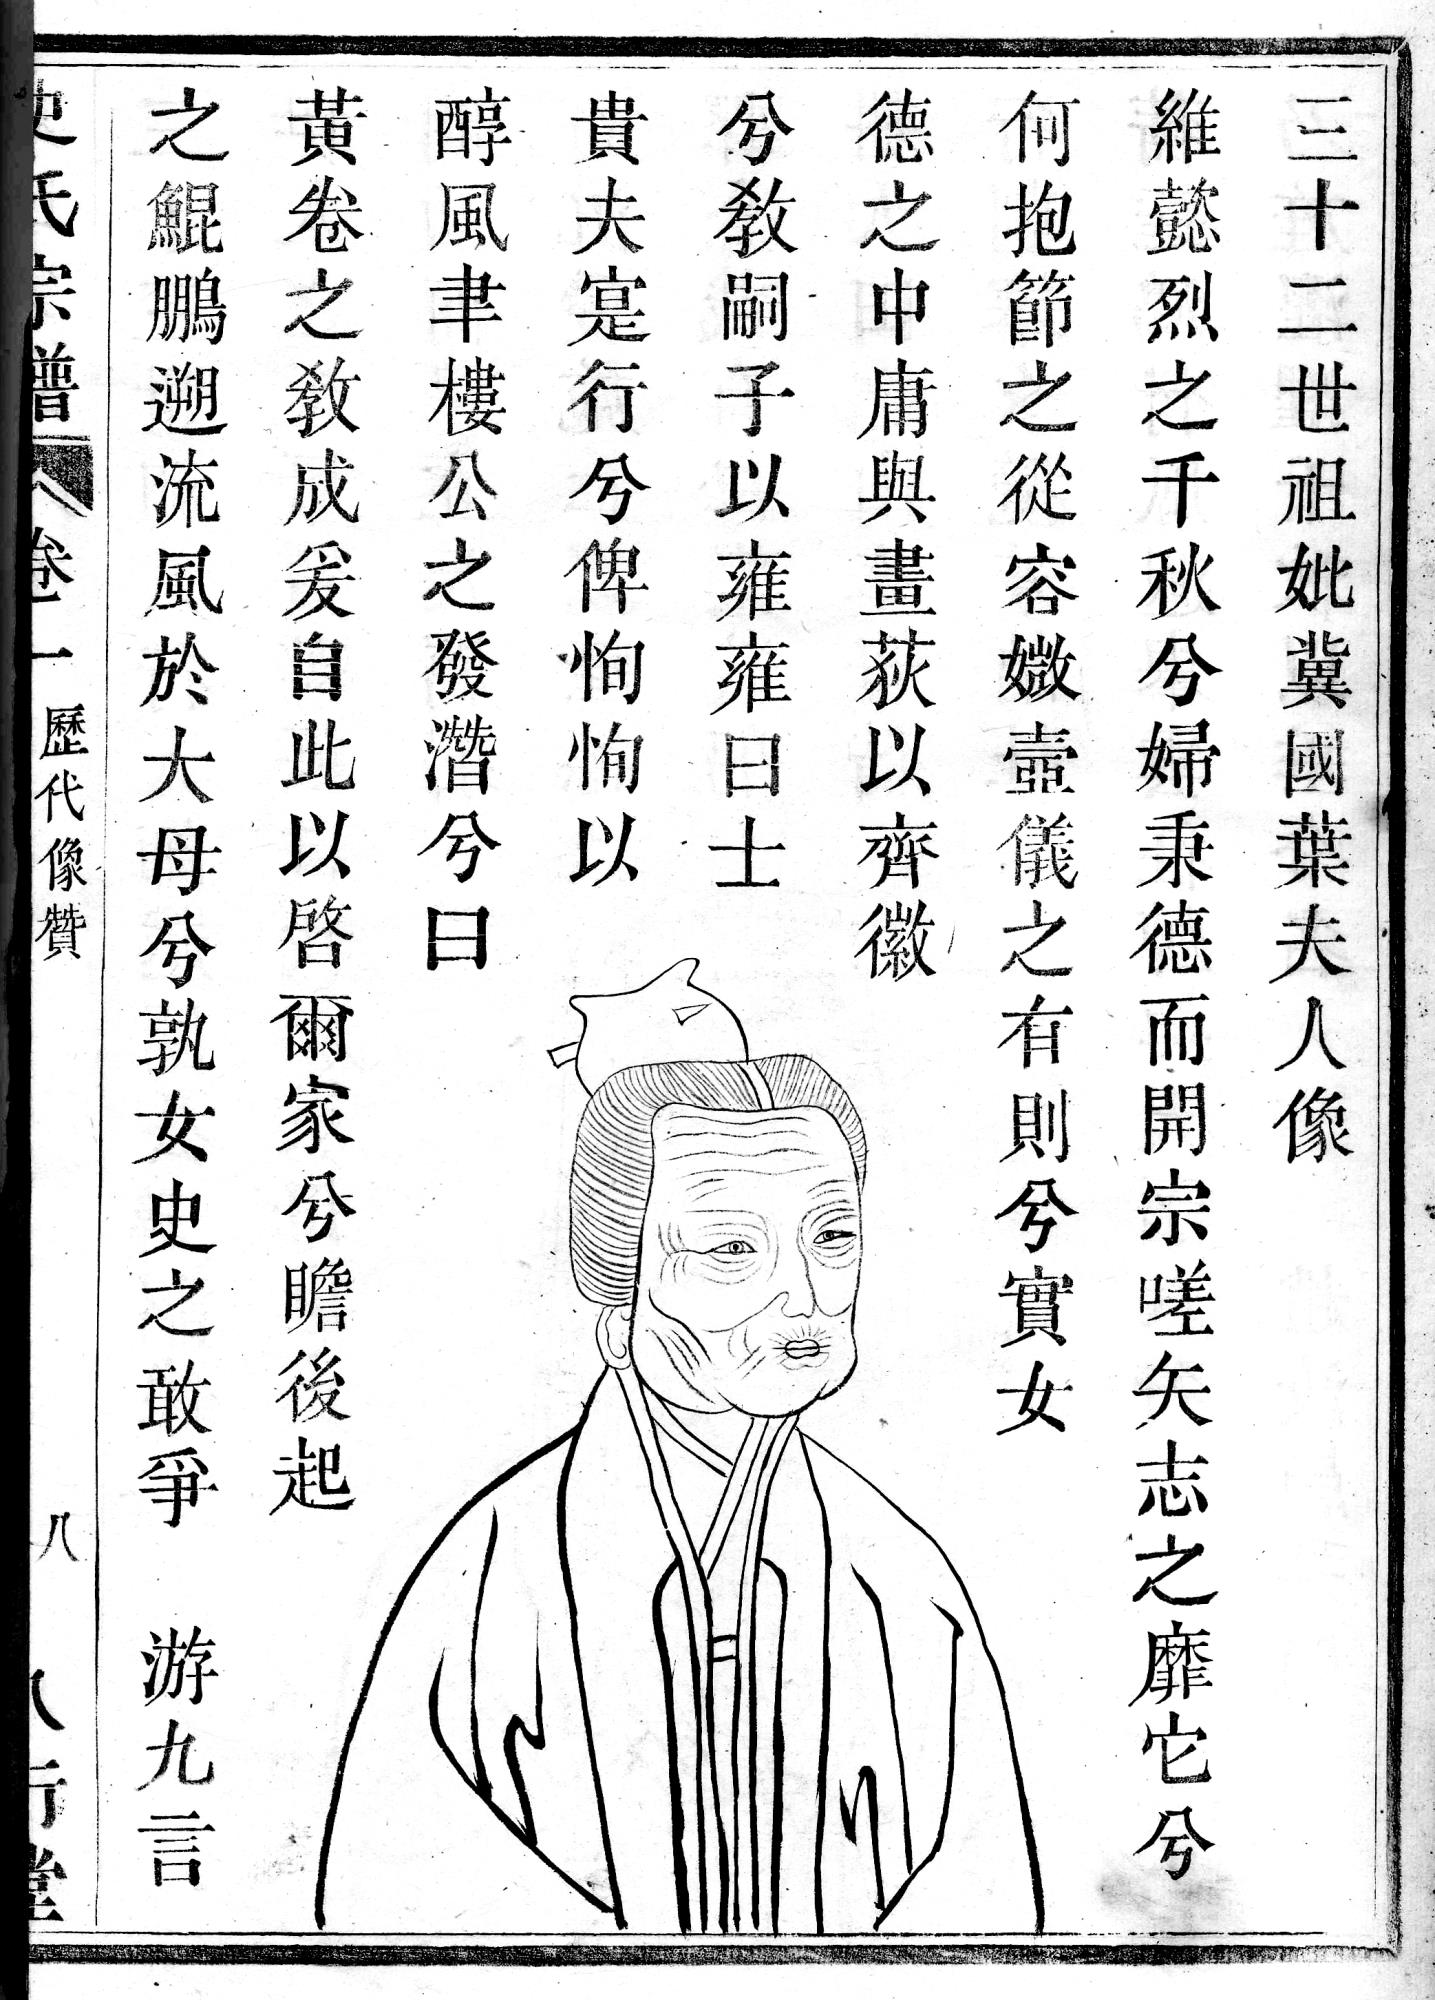 三十二世祖妣冀國葉夫人像
維懿烈之千秋兮婦秉德而開宗嗟矢志之靡它兮
何抱節之從容媺壼儀之有則兮實女
德之中庸與畫荻以齊徽
兮敎嗣子以雍雍曰士
貴夫寔行兮俾恂恂以
醇風聿樓公之發潛兮曰
黃卷之敎成爰自此以啓爾家兮瞻後起
之鯤鵬遡流風於大母兮孰女史之敢爭　游九言
史氏宗譜　卷一　歷代像贊　八　八行堂